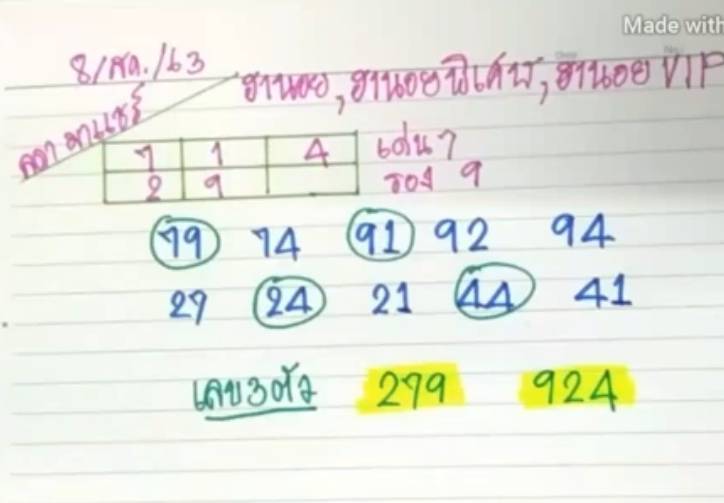 Made with
8/สค./63
ฮานอย, ฮานอยพิเศษ, ฮานอย VIP
มาแชร์
7 1 4 เด่น 7
2 9 รอง 9
79 74 91 92 94
27 24 21 44 41
เลข3ตัว 279 924